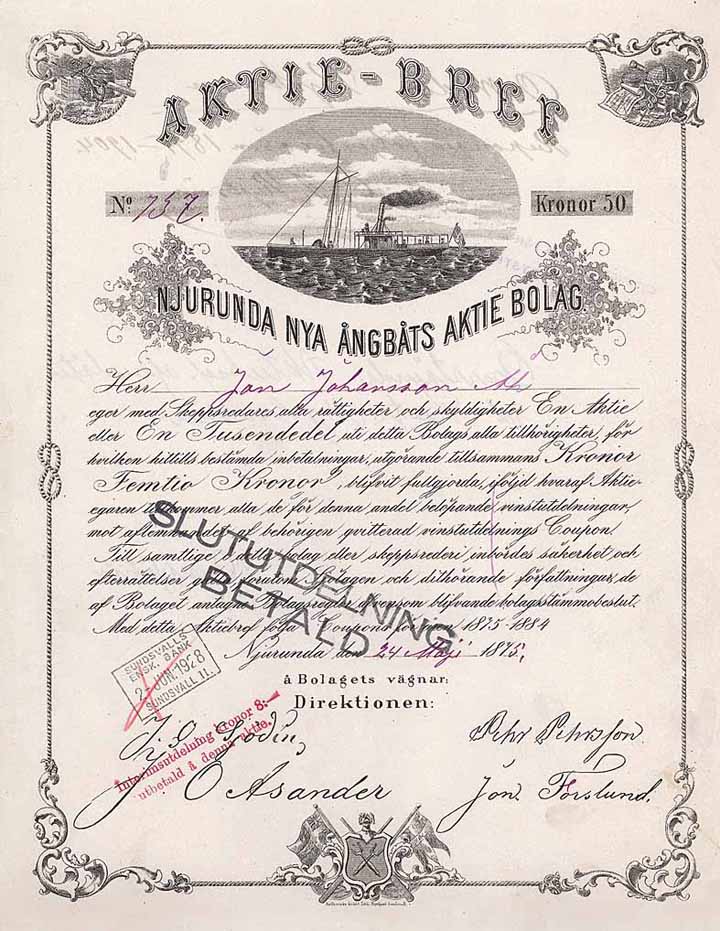 AKTIE-BREF
No 737.
Kronor 50
NJURUNDA NYA ÅNGBÅTS AKTIE BOLAG.
Herr Jon Johansson
eger med Skeppsredares alla rättigheter och skyldigheter En Aktie
eller En Tusendedel uti detta Bolags alla tillhörigheter, för
hvilken hittills bestämda inbetalningar, utgörande tillsammans Kronor
Femtio Kronor, blifvit fullgjorda, iföljd hvaraf Aktie-
egaren tillkommer alla de för denna andel belöpande vinstutdelningar,
mot aflemnandet af behörigen qvitterad vinstutdelnings Coupon.
Till samtlige i detta bolag eller skeppsrederi inbördes säkerhet och
efterrättelser gälla, förutom Sjölagen och dithörande författningar, de
af Bolaget antagne Bolagsregler äfvensom blifvande bolagsstämmobeslut.
Med detta Aktiebref följa Coupons för åren 1875-1884
Njurunda den 24 Maji 1875.
SLUTUTDELNING
BETALD
SUNDSVALLS
ENSK. BANK
2 JUN. 1928
SUNDSVALL II.
å Bolagets vägnar:
Direktionen:
Interimsutdelning kronor 8:—
utbetald å denna aktie.
Sjödin,
Pehr Pehrsson.
O Åsander
Jon Forslund.